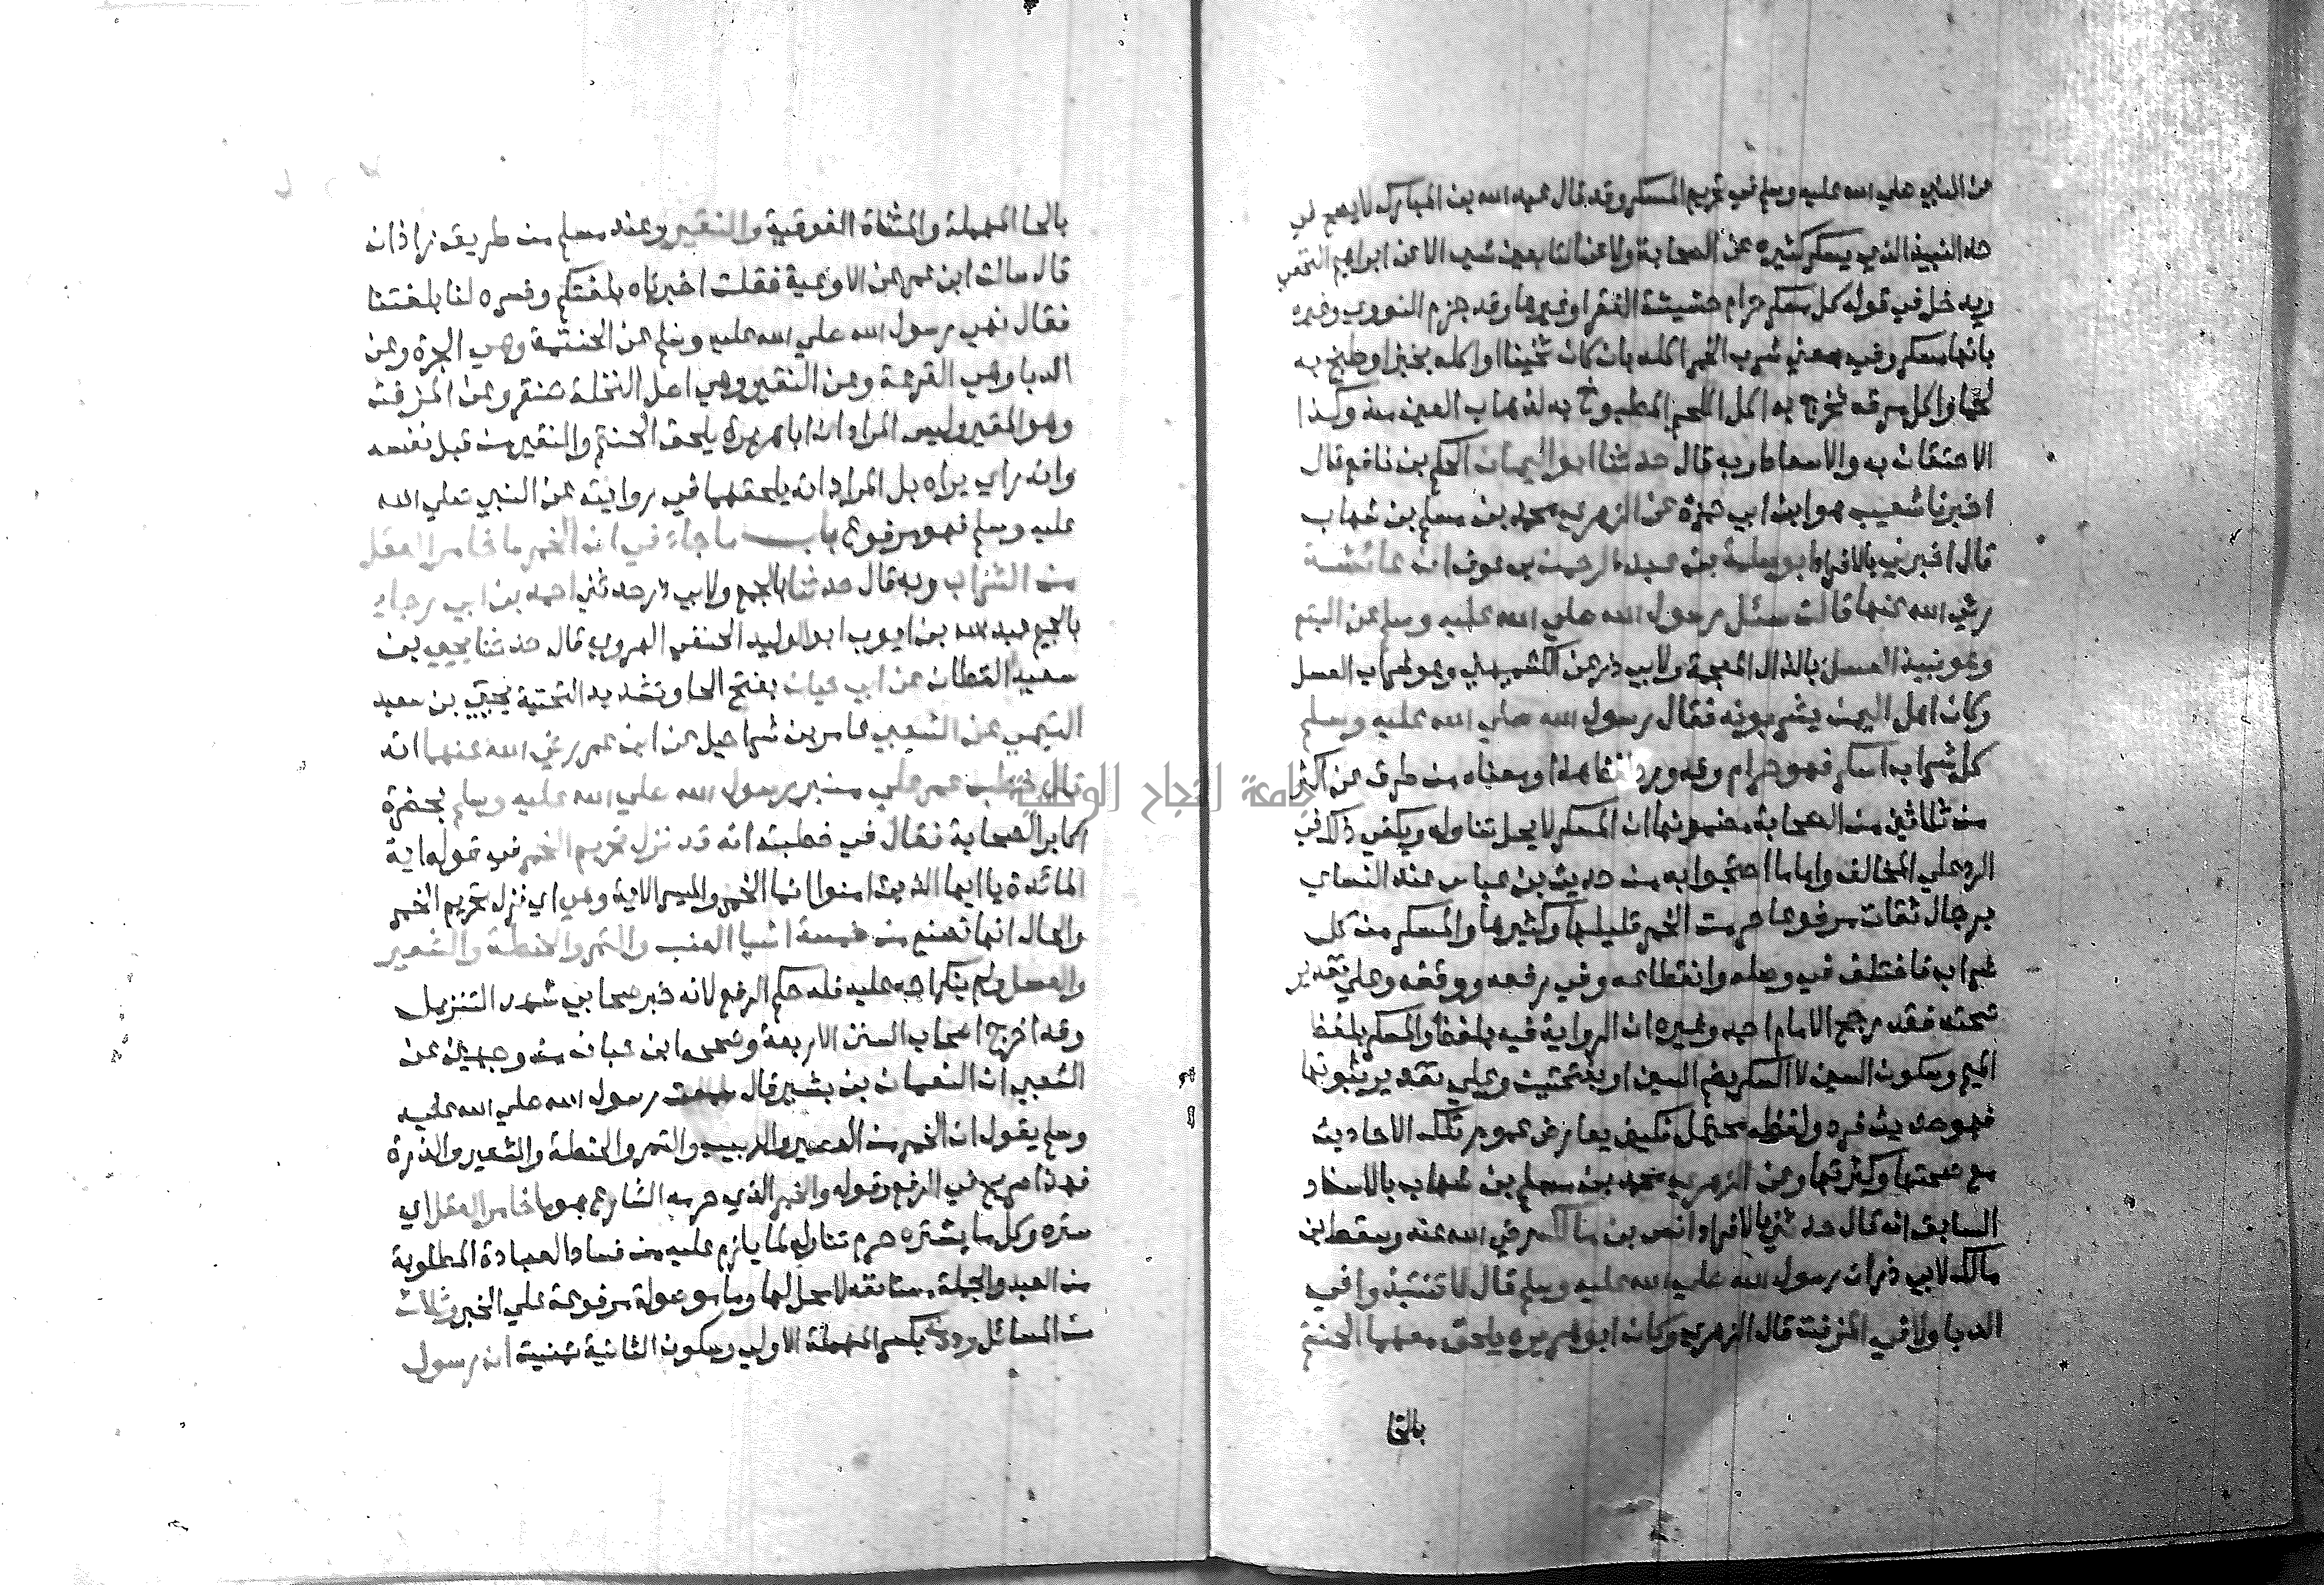 عن النبي صلي الله عليه وسلم في تحريم المسكر وقد قال عبد الله بن المبارك لا يصح في
حل النبيذ الذي يسكر كثيره عن الصحابة ولا عن التابعين شيء الا عن ابراهيم النخعي
ويدخل في قوله كل مسكر حرام حشيشة الفقرا وغيرها وقد جزم النووي وغيره
بانها مسكر وفي معني شرب الخمر اكله بان كان ثخينا او اكله بخبز او طبخ به
لحما واكل مرقه فخرج به اكل اللحم المطبوخ به لذهاب العين منه وكذا
الاحتقان به والاسعاط وبه قال حدثنا ابو اليمان الحكم بن نافع قال
اخبرنا شعيب هو ابن ابي حمزة عن الزهري محمد بن مسلم بن شهاب
قال اخبرني بالافراد ابو سلمة بن عبد الرحمن بن عوف ان عائشة
رضي الله عنها قالت سئل رسول الله صلي الله عليه وسلم عن البتع
وهو نبيذ العسل بالذال المعجمة ولابي ذر عن الكشميهني وهو شراب العسل
وكان اهل اليمن يشربونه فقال رسول الله صلي الله عليه وسلم
كل شراب اسكر فهو حرام وقد ورد لفظ هذا ومعناه من طرق عن اكثر
من ثلاثين من الصحابة مضمونها ان المسكر لا يحل تناوله ويكفي ذلك في
الرد علي المخالف واما ما احتجوا به من حديث بن عباس عند النساي
برجال ثقات مرفوعا حرمت الخمر قليلها وكثيرها والمسكر من كل
شراب فاختلف في وصله وانقطاعه وفي رفعه ووقفه وعلي تقدير
صحته فقد رجح الامام احمد وغيره ان الرواية فيه بلفظ والمسكر بلفظ
الميم وسكون السين لا السكر بضم السين او بفتحتين وعلي تقدير ثبوتها
فهو حديث فرد ولفظه محتمل فكيف يعارض عموم تلك الاحاديث
مع صحتها وكثرتها وعن الزهري محمد بن مسلم بن شهاب بالاسناد
السابق انه قال حدثني بالافراد انس بن مالك رضي الله عنه وسقط ابن
مالك لابي ذر ان رسول الله صلي الله عليه وسلم قال لا تنتبذوا في
الدبا ولا في المزفت قال الزهري وكان ابو هريره يلحق معهما الحنتم
بالحا
بالحا المهملة والمثناة الفوقية والنقير وعند مسلم من طريق زاذان
قال سالت ابن عمر عن الاوعية فقلت اخبرناه بلغتكم وفسره لنا بلغتنا
فقال نهي رسول الله صلي الله عليه وسلم عن الحنتمة وهي الجرة وعن
الدبا وهي القرعة وعن النقير وهي اصل النخلة تنقر وعن المزفت
وهو المقير وليس المراد ان ابا هريرة يلحق الحنتم والنقير من قبل نفسه
وانه راي يراه بل المراد انه يلحقهما في روايته عن النبي صلي الله
عليه وسلم فهو مرفوع باب ما جاء في ان الخمر ما خامر العقل
من الشراب وبه قال حدثنا بالجمع ولابي ذر حدثني احمد بن ابي رجاء
بالجيم عبد الله بن ايوب ابو الوليد الحنفي الهروي قال حدثنا يحيي بن
سعيد القطان عن ابي حيان بفتح الحا وتشديد التحتية يحيي بن سعيد
التيمي عن الشعبي عامر بن شراحيل عن ابن عمر رضي الله عنهما انه
قال خطب عمر علي منبر رسول الله صلي الله عليه وسلم بحضرة
اكابر الصحابة فقال في خطبته انه قد نزل تحريم الخمر في قوله اية
المائدة يا ايها الذين امنوا انما الخمر والميسر الاية وهي اي نزل تحريم الخمر
والحال انها تصنع من خمسة اشيا العنب والتمر والحنطة والشعير
والعسل ولم ينكر احد عليه فله حكم الرفع لانه خبر صحابي شهد التنزيل
وقد اخرج اصحاب السنن الاربعة وصححه ابن حبان من وجهين عن
الشعبي ان النعمان بن بشير قال سمعت رسول الله صلي الله عليه
وسلم يقول ان الخمر من العصير والزبيب والتمر والحنطة والشعير والذرة
فهذا صريح في الرفع وقوله والخمر الذي حرمه الشارع هو ما خامر العقل اي
ستره وكل ما يستره حرم تناوله لما يلزم عليه من فساد العبادة المطلوبة
من العبد والجملة مستانفه لا محل لها وما موصولة مرفوعة علي الخبر وثلاث
من المسائل وددت بكسر المهملة الاولي وسكون الثانية تمنيت ان رسول